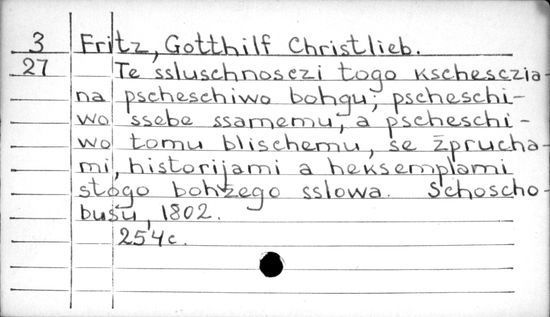 3 Fritz, Gotthilf Christlieb.
27 Te ssluschnosczi togo kschesczia-
na pscheschiwo bohgu, pscheschi-
wo ssebe ssamemu, a pscheschi-
wo tomu blischemu, se žprucha-
mi, historijami a heksemplami
stogo bohžego sslowa. Schoscho-
bušu, 1802.
254c.